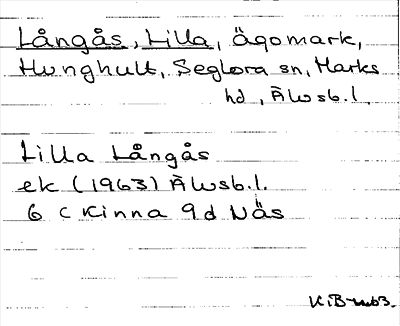 Långås, Lilla, Ägomark,
Hunghult, Seglora sn, Marks
hd, Älvsb.l.
Lilla Långås
ek (1963) Älvsb.l.
6 C Kinna 9d Näs